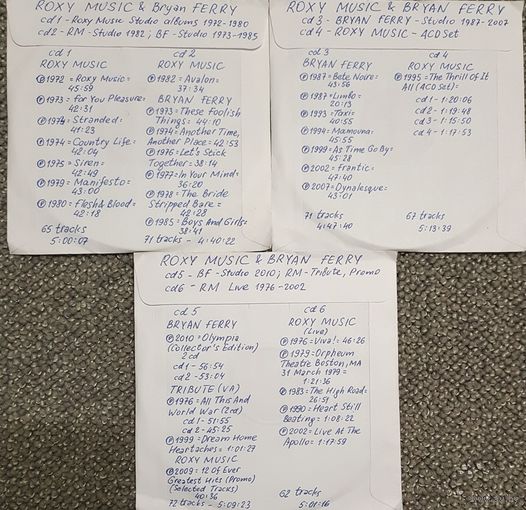 ROXY MUSIC & Bryan FERRY
cd1 - Roxy Music Studio albums 1972-1980
cd2 - RM - Studio 1982; BF - Studio 1973-1985
cd 1
ROXY MUSIC
Ⓟ1972 = Roxy Music =
45:59
Ⓟ1973 = For You Pleasure =
42:31
Ⓟ1974 = Stranded =
41:23
Ⓟ1974 = Country Life =
42:04
Ⓟ1975 = Siren =
42:49
Ⓟ1979 = Manifesto =
43:00
Ⓟ1980 = Flesh & Blood =
42:18
65 tracks
5:00:07
cd 2
ROXY MUSIC
Ⓟ1982 = Avalon =
37:34
BRYAN FERRY
Ⓟ1973 = These Foolish
Things = 44:10
Ⓟ1974 = Another Time,
Another Place = 42:53
Ⓟ1976 = Let's Stick
Together = 38:14
Ⓟ1977 = In Your Mind =
36:20
Ⓟ1978 = The Bride
Stripped Bare =
42:28
Ⓟ1985 = Boys And Girls =
38:41
71 tracks - 4:40:22
ROXY MUSIC & BRYAN FERRY
cd 3 - BRYAN FERRY - Studio 1987-2007
cd 4 - ROXY MUSIC - 4CD Set
cd 3
BRYAN FERRY
Ⓟ1987 = Bete Noire =
43:56
Ⓟ1987 = Limbo =
20:13
Ⓟ1993 = Taxi =
40:55
Ⓟ1994 = Mamouna =
45:55
Ⓟ1999 = As Time Go By =
45:28
Ⓟ2002 = Frantic =
47:40
Ⓟ2007 = Dynalesque =
43:01
71 tracks
4:47:40
cd 4
ROXY MUSIC
Ⓟ1995 = The Thrill Of It
All (4CD Set) =
cd 1 - 1:20:06
cd 2 - 1:19:48
cd 3 - 1:15:50
cd 4 - 1:17:53
67 tracks
5:13:39
ROXY MUSIC & BRYAN FERRY
cd5 - BF - Studio 2010; RM - Tribute, Promo
cd6 - RM Live 1976-2002
cd 5
BRYAN FERRY
Ⓟ2010 = Olympia
(Collector's Edition)
2cd
cd 1 - 56:54
cd 2 - 53:04
TRIBUTE (VA)
Ⓟ1976 = All This And
World War (2cd)
cd 1 - 51:55
cd 2 - 45:25
Ⓟ1999 = Dream Home
Heartaches = 1:01:27
ROXY MUSIC
Ⓟ2009 = 12 Of Ever
Greatest Hits (Promo)
(Selected Tracks)
40:36
72 tracks - 5:09:23
cd 6
ROXY MUSIC
(Live)
Ⓟ1976 = Viva! = 46:26
Ⓟ1979 = Orpheum
Theatre Boston, MA
31 March 1979 =
1:21:36
Ⓟ1983 = The High Road =
26:51
Ⓟ1990 = Heart Still
Beating = 1:08:22
Ⓟ2002 = Live At The
Apollo = 1:17:59
62 tracks
5:01:16